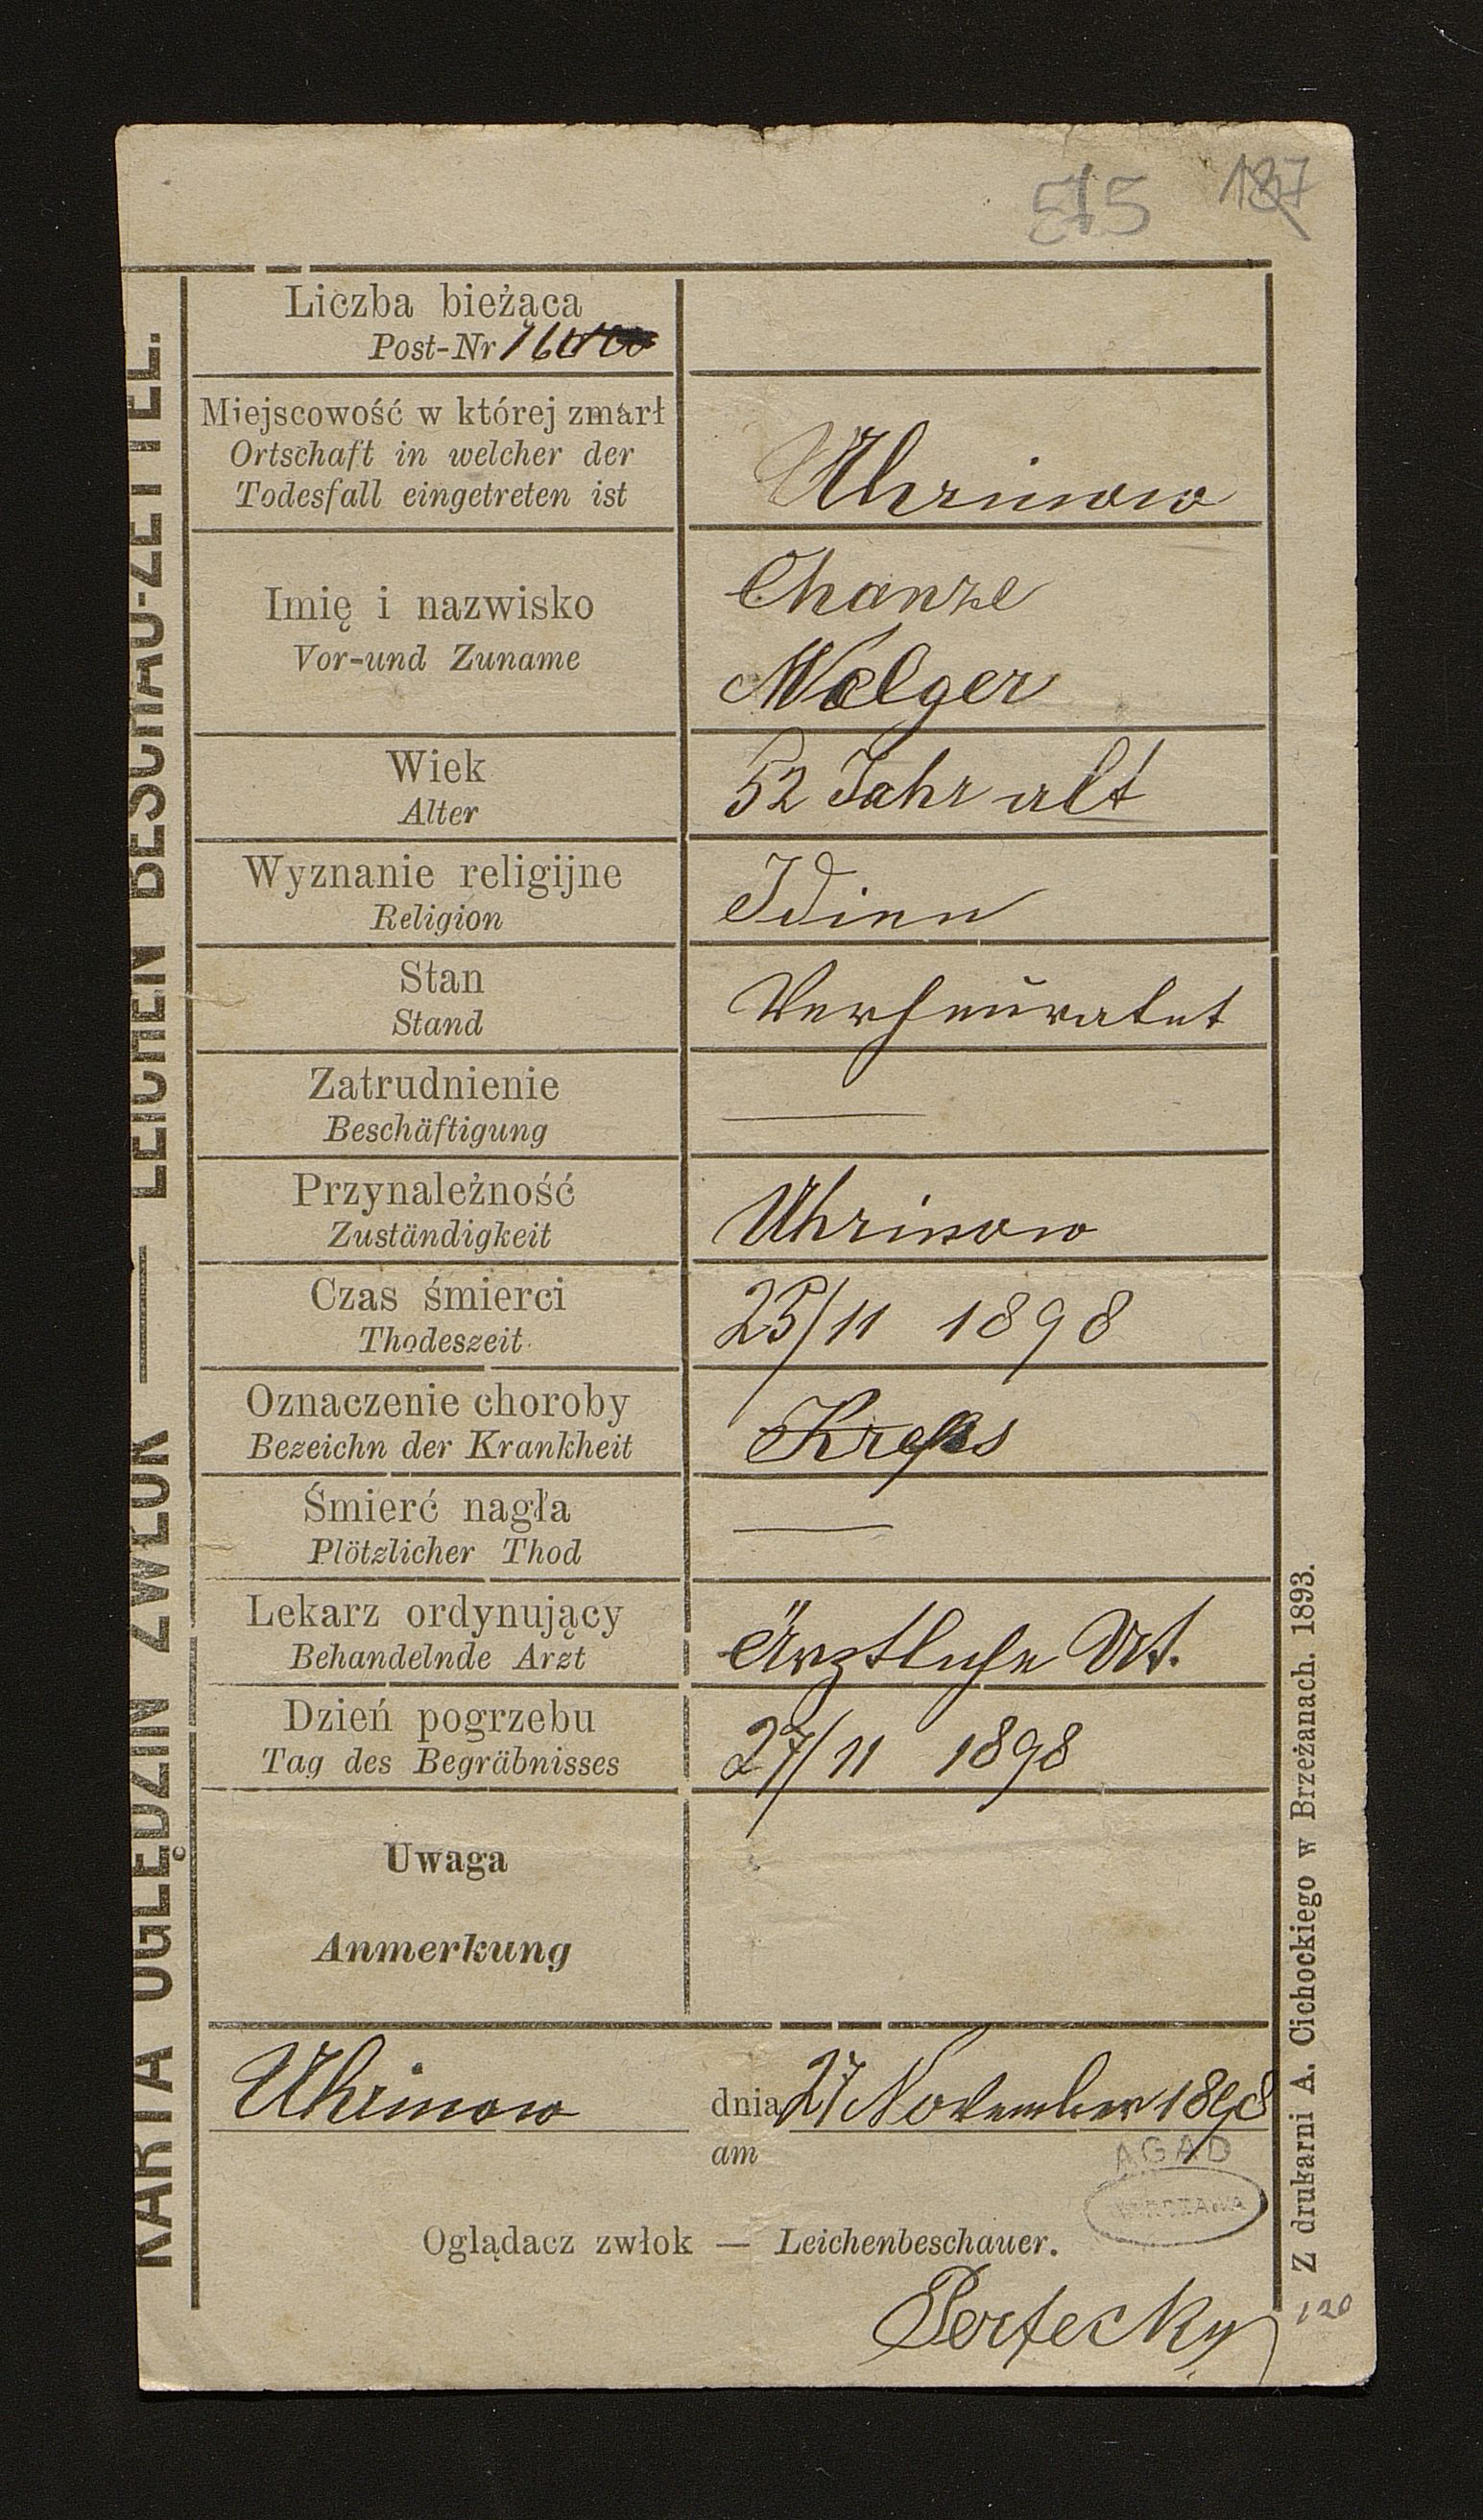 515 137
KARTA OGLĘDZIN ZWŁOK — LEICHEN BESCHAU-ZETTEL.
Liczba bieżąca
Post-Nr
Miejscowość w której zmarł
Ortschaft in welcher der
Todesfall eingetreten ist
Uhrinow
Imię i nazwisko
Vor-und Zuname
Chanze
Welger
Wiek
Alter
52 Jahr alt
Wyznanie religijne
Religion
Idinn
Stan
Stand
Verheuratet
Zatrudnienie
Beschäftigung
Przynależność
Zuständigkeit
Uhrinow
Czas śmierci
Thodeszeit
25/11 1898
Oznaczenie choroby
Bezeichn der Krankheit
Kreps
Śmierć nagła
Plötzlicher Thod
Lekarz ordynujący
Behandelnde Arzt
Ärztliche
Dzień pogrzebu
Tag des Begräbnisses
27/11 1898
Uwaga
Anmerkung
Uhrinow dnia 27 November 1898
am
AGAD
WARSZAWA
Oglądacz zwłok — Leichenbeschauer.
Perfecky
120
Z drukarni A. Cichockiego w Brzeżanach. 1893.